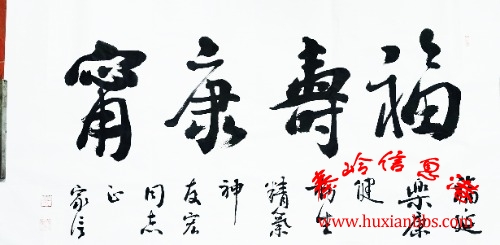 福壽康甯
樂康
健
生
精氣
神
友宏
同志
正
信息
www.huxianbbs.com